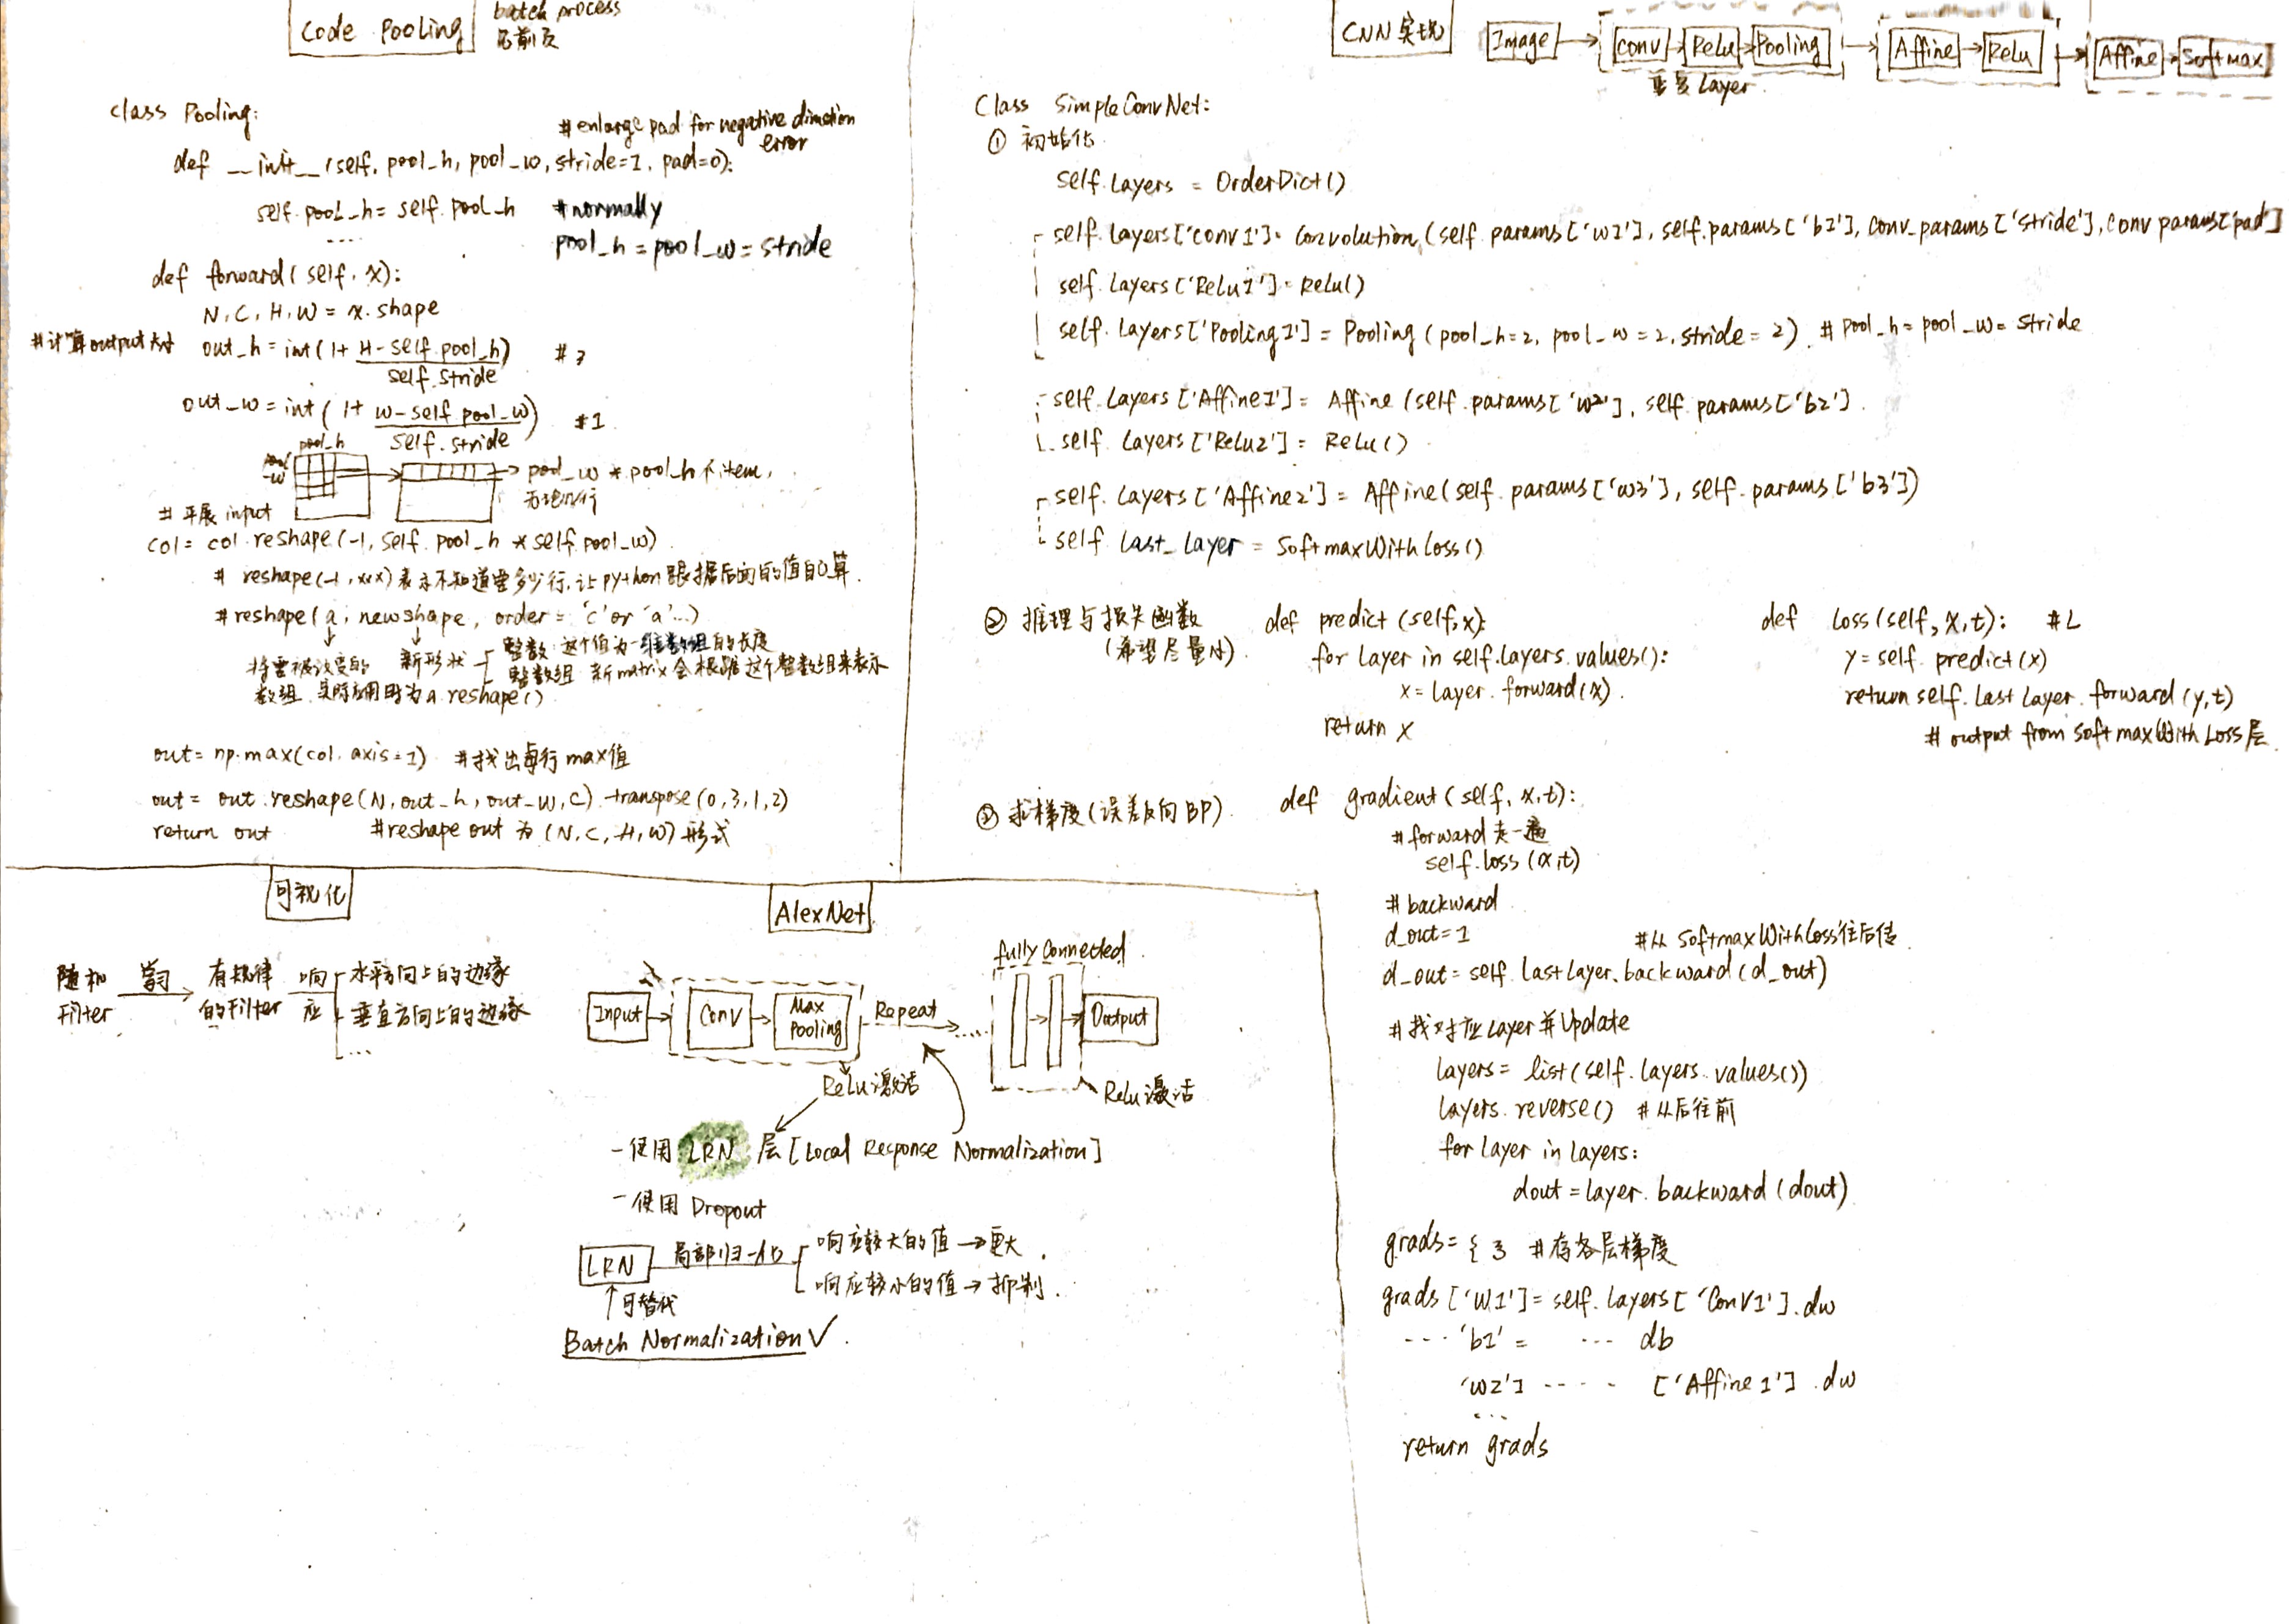 Code Pooling
batch process
class Pooling:
# enlarge pad for negative direction error
def __init__(self, pool_h, pool_w, stride=1, pad=0):
self.pool_h = self.pool_h
#normally
....
pool_h = pool_w = stride
def forward(self, x):
N, C, H, W = x.shape
#计算output大小
out_h = int(1+ H-self.pool_h / self.stride)
out_w = int(1+ W-self.pool_w / self.stride) #1
pool_h
pool_w
pool_w * pool_h 个item,
# 平展 input
col = col.reshape(-1, self.pool_h * self.pool_w)
# reshape(-1, xxx) 表示不知道要多少行,让python跟据后面的值自己算.
#reshape(a, newshape, order = 'c' or 'a'...)
将需被改变的数组. 实际应用时为a.reshape()
新形状
整数:这个值为一维数组的长度
整数组:新matrix会根据这个整数组来表示
out = np.max(col, axis=1) #找出每行max值
out = out.reshape(N, out_h, out_w, C).transpose(0,3,1,2)
return out #reshape out 为 (N, C, H, W) 形式
CNN 实现
Image
Conv
Relu
Pooling
Affine
Relu
Affine
Softmax
重复Layer
Class SimpleConvNet:
① 初始化
self.Layers = OrderDict()
self.Layers['conv1'] = Convolution(self.params['w1'], self.params['b1'], conv_params['stride'], conv params['pad']
self.Layers['Relu1'] = Relu()
self.Layers['Pooling1'] = Pooling(pool_h=2, pool_w=2, stride=2). # Pool_h = pool_w = stride
self.Layers['Affine1'] = Affine(self.params['w2'], self.params['b2'].
self.Layers['Relu2'] = Relu()
self.Layers['Affine2'] = Affine(self.params['w3'], self.params['b3'])
self.last_layer = SoftmaxWithLoss()
② 推理与损失函数
(希望尽量小).
def predict(self,x):
for layer in self.layers.values():
x = layer.forward(x).
return x
def Loss(self, x, t): #L
y = self.predict(x)
return self.last layer.forward(y,t)
# output from SoftmaxWithLoss层
③ 求梯度(误差反向BP).
def gradient(self, x, t):
#forward 走一遍
self.loss(x,t)
#backward
d_out = 1 #从SoftmaxWithLoss往后传.
d_out = self.lastlayer.backward(d_out)
#找对应Layer并Update
layers = list(self.layers.values())
layers.reverse() #从后往前
for layer in layers:
dout = layer.backward(dout)
grads = { } #存各层梯度
grads['W1'] = self.layers['Conv1'].dw
.... 'b1' = ... db
'w2'] .... ['Affine1'].dw
...
return grads
可视化
随机Filter
学习
有规律的Filter
响应
水平方向上的边缘
垂直方向上的边缘
...
AlexNet
Input
Conv
Max Pooling
Repeat
.....
fully connected
Output
Relu激活
Relu激活
- 使用 LRN 层 [Local Response Normalization]
- 使用 Dropout
LRN
局部归一化
响应较大的值 → 更大.
响应较小的值 → 抑制.
↑可替代
Batch Normalization ✓.